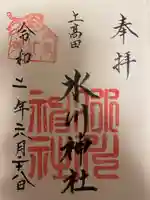 奉拝
上高田
氷川神社
令和二年六月十八日